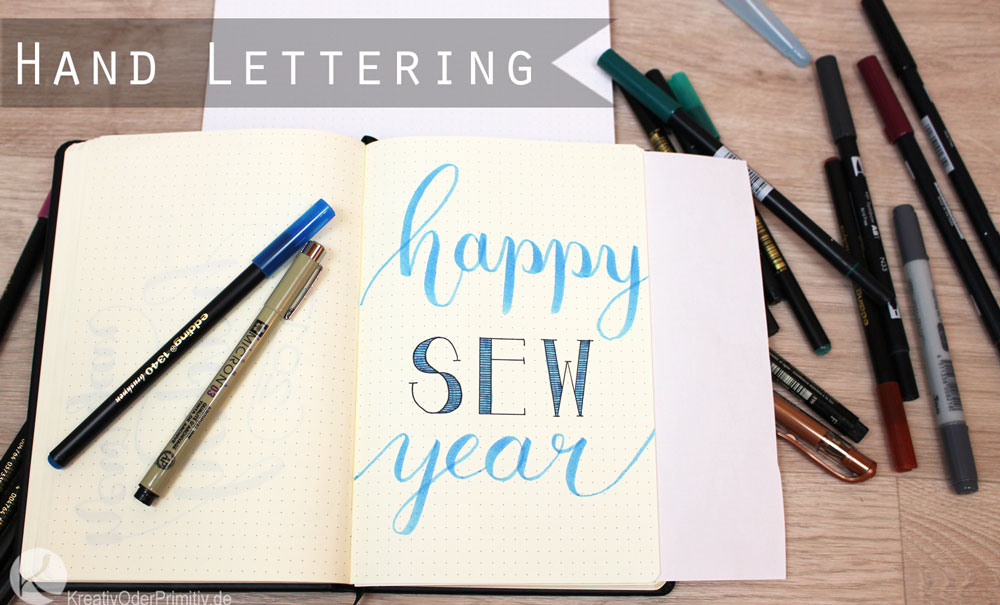 HAND LETTERING
happy
SEW
year
edding 1340 brushpen
MICRON 03
KreativOderPrimitiv.de